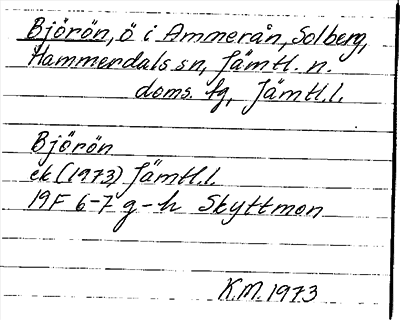 Björön, ö i Ammerån, Solberg,
Hammerdals sn, Jämtl. n.
doms. fg, Jämtl.l.
Björön
ek (1973) Jämtl.l.
19F 6-7 g-h Skyttmon
K.M. 1973